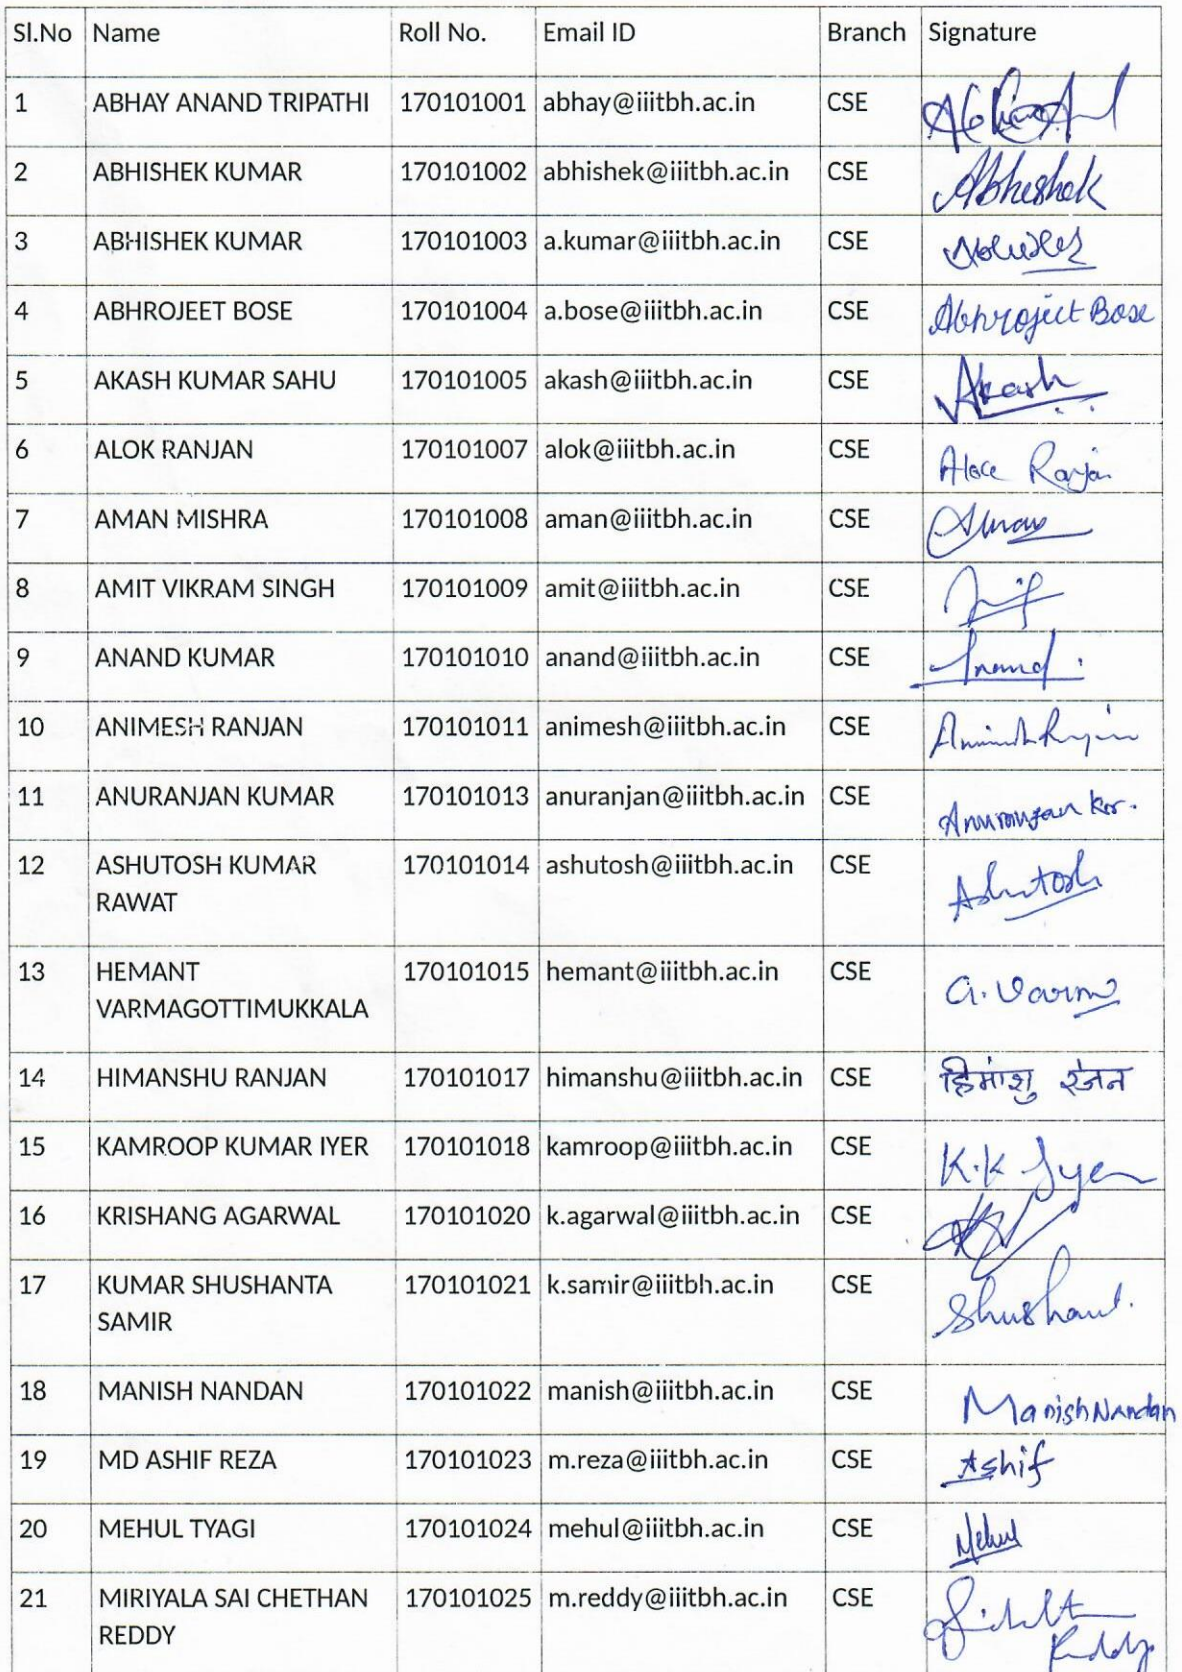 Sl.No Name Roll No. Email ID Branch Signature
1 ABHAY ANAND TRIPATHI 170101001 abhay@iiitbh.ac.in CSE
2 ABHISHEK KUMAR 170101002 abhishek@iiitbh.ac.in CSE Abhishek
3 ABHISHEK KUMAR 170101003 a.kumar@iiitbh.ac.in CSE
4 ABHROJEET BOSE 170101004 a.bose@iiitbh.ac.in CSE Abhrojeet Bose
5 AKASH KUMAR SAHU 170101005 akash@iiitbh.ac.in CSE Akash
6 ALOK RANJAN 170101007 alok@iiitbh.ac.in CSE Ranjan
7 AMAN MISHRA 170101008 aman@iiitbh.ac.in CSE
8 AMIT VIKRAM SINGH 170101009 amit@iiitbh.ac.in CSE
9 ANAND KUMAR 170101010 anand@iiitbh.ac.in CSE Anand
10 ANIMESH RANJAN 170101011 animesh@iiitbh.ac.in CSE
11 ANURANJAN KUMAR 170101013 anuranjan@iiitbh.ac.in CSE Anuranjan Kr.
12 ASHUTOSH KUMAR 170101014 ashutosh@iiitbh.ac.in CSE Ashutosh
RAWAT
13 HEMANT 170101015 hemant@iiitbh.ac.in CSE G. Varma
VARMAGOTTIMUKKALA
14 HIMANSHU RANJAN 170101017 himanshu@iiitbh.ac.in CSE हिमांशु रंजन
15 KAMROOP KUMAR IYER 170101018 kamroop@iiitbh.ac.in CSE K.K Iyer
16 KRISHANG AGARWAL 170101020 k.agarwal@iiitbh.ac.in CSE
17 KUMAR SHUSHANTA 170101021 k.samir@iiitbh.ac.in CSE Shushant.
SAMIR
18 MANISH NANDAN 170101022 manish@iiitbh.ac.in CSE Manish Nandan
19 MD ASHIF REZA 170101023 m.reza@iiitbh.ac.in CSE Ashif
20 MEHUL TYAGI 170101024 mehul@iiitbh.ac.in CSE Mehul
21 MIRIYALA SAI CHETHAN 170101025 m.reddy@iiitbh.ac.in CSE
REDDY Reddy